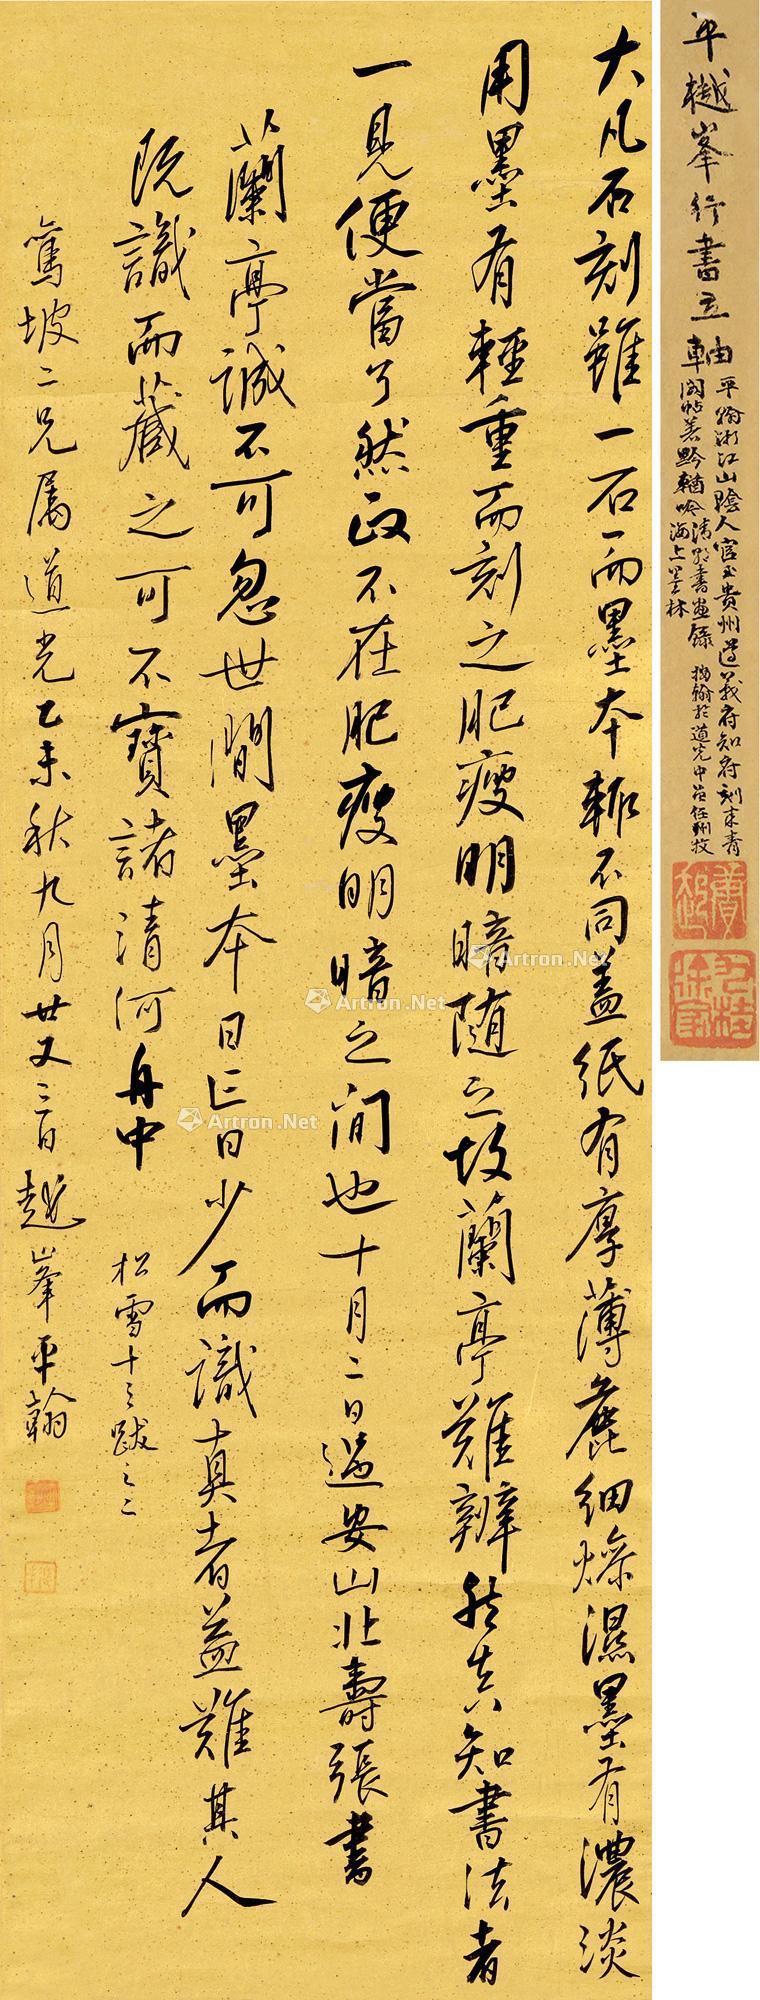 平樾峯行書立軸
平翰浙江山陰人官至貴州遵義府知府刻來青
閣帖著黔軺吟清朝書畫錄
海上墨林
翰於道光中
大凡石刻雖一石而墨本輒不同盖紙有厚薄麁細燥濕墨有濃淡
用墨有輕重而刻之肥瘦明暗随之故蘭亭難辨然真知書法者
一見便當了然政不在肥瘦明暗之間也十月二日過安山壯壽張書
蘭亭誠不可忽世間墨本日亡日少而識真者益難其人
既識而藏之可不寶諸清河舟中
松雪十三跋之二
鶱坡二兄属道光乙未秋九月廿又三日越峯平翰
Artron.Net
Artron.Net
Artron.Net